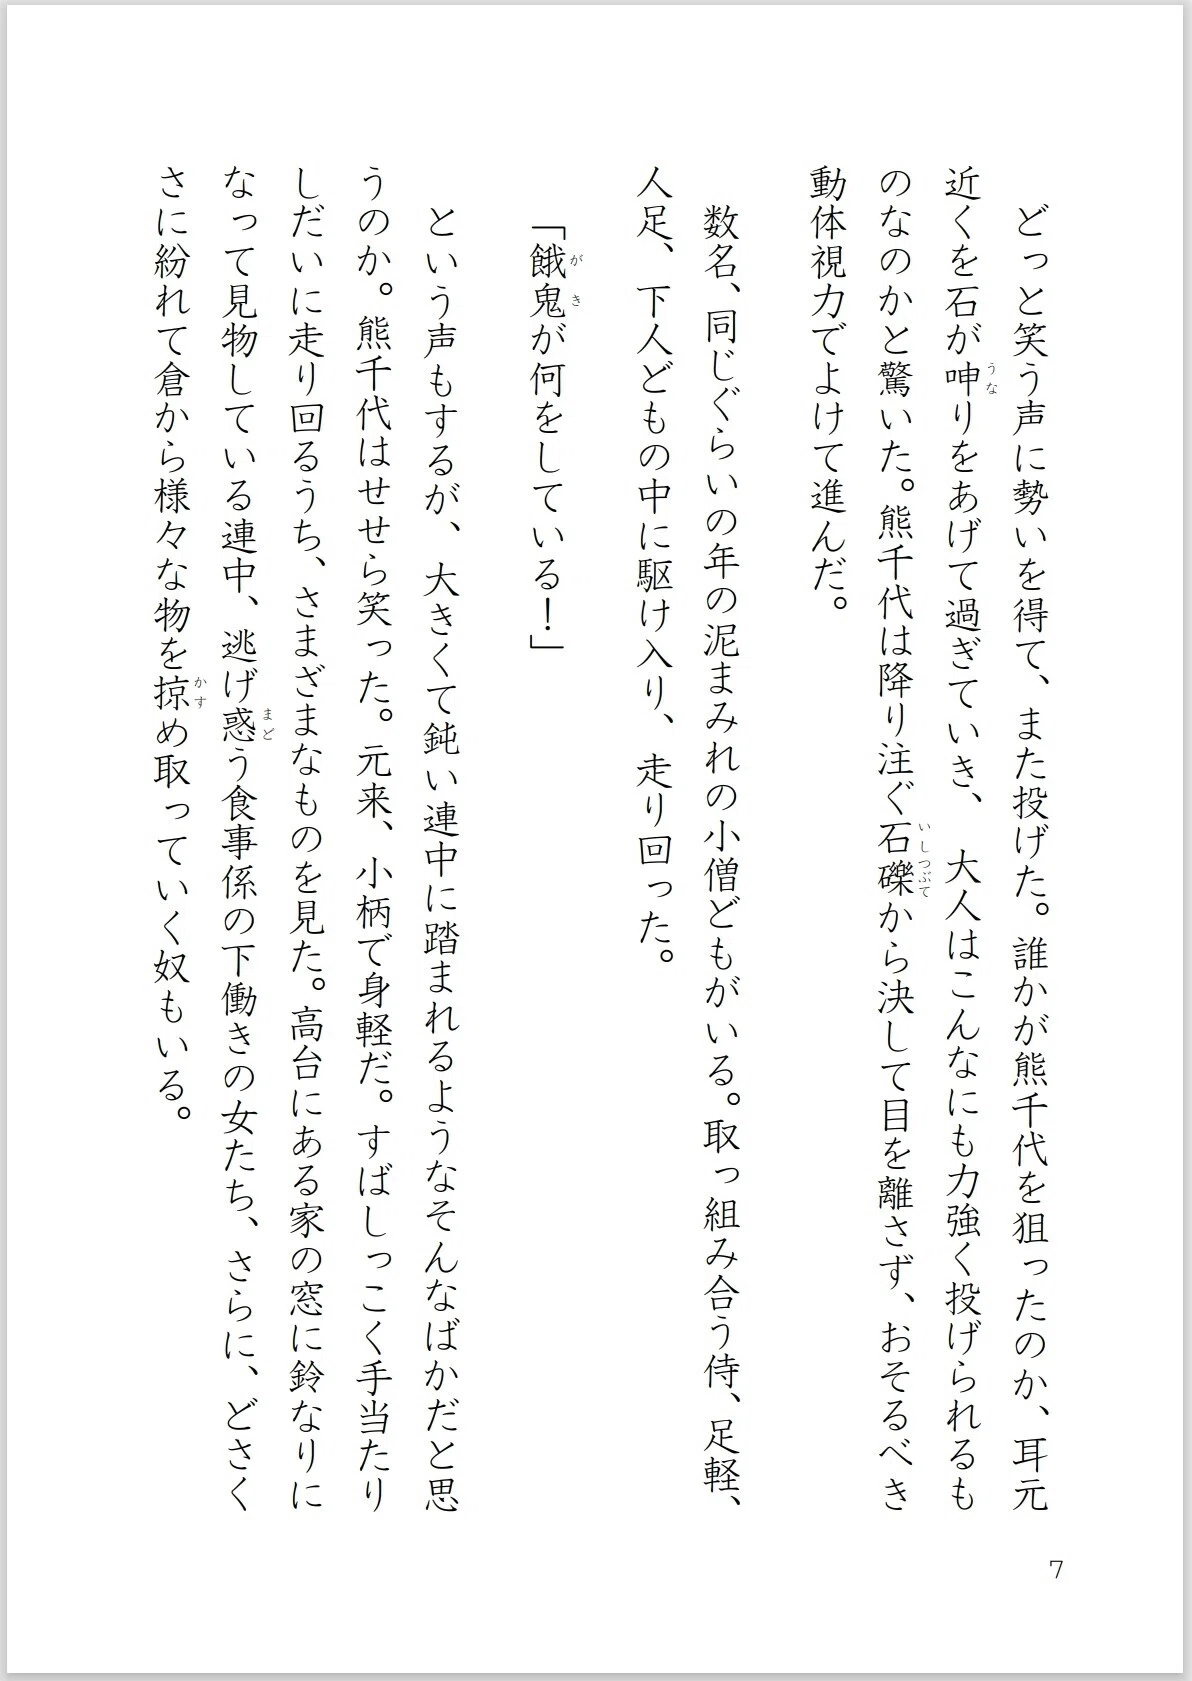 どっと笑う声に勢いを得て、また投げた。誰かが熊千代を狙ったのか、耳元
近くを石が呻りをあげて過ぎていき、大人はこんなにも力強く投げられるも
のなのかと驚いた。熊千代は降り注ぐ石礫から決して目を離さず、おそるべき
動体視力でよけて進んだ。
数名、同じぐらいの年の泥まみれの小僧どもがいる。取っ組み合う侍、足軽、
人足、下人どもの中に駆け入り、走り回った。
「餓鬼が何をしている！」
という声もするが、大きくて鈍い連中に踏まれるようなそんなばかだと思
うのか。熊千代はせせら笑った。元来、小柄で身軽だ。すばしっこく手当たり
しだいに走り回るうち、さまざまなものを見た。高台にある家の窓に鈴なりに
なって見物している連中、逃げ惑う食事係の下働きの女たち、さらに、どさく
さに紛れて倉から様々な物を掠め取っていく奴もいる。
7